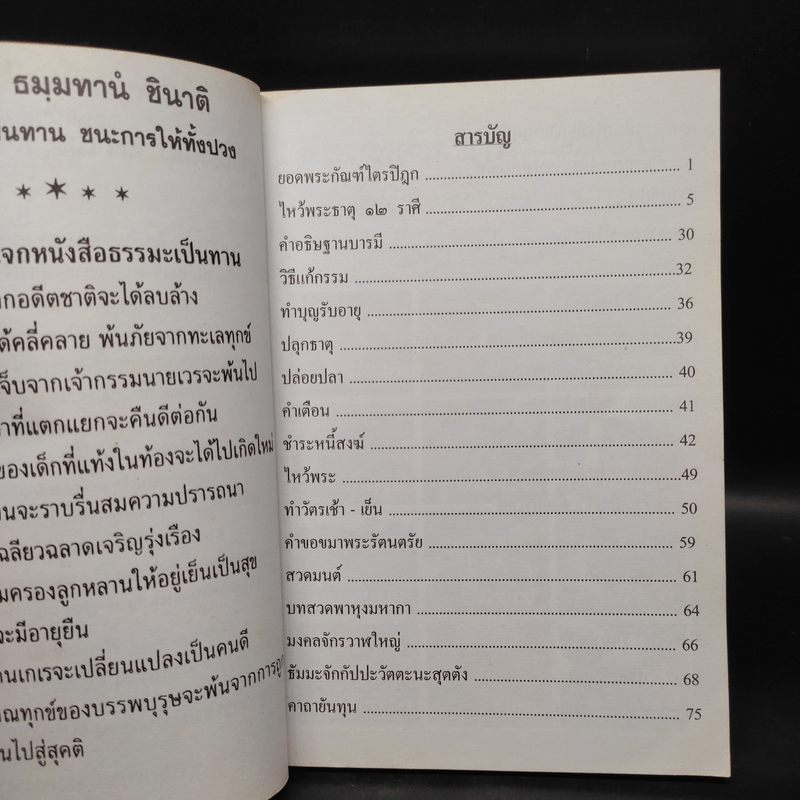 ธมฺมทานํ ชินาติ
ทาน ชนะการให้ทั้งปวง
แจกหนังสือธรรมะเป็นทาน
อดีตชาติจะได้ลบล้าง
คลี่คลาย พ้นภัยจากทะเลทุกข์
จากเจ้ากรรมนายเวรจะพ้นไป
ที่แตกแยกจะคืนดีต่อกัน
ของเด็กที่แท้งในท้องจะได้ไปเกิดใหม่
จะราบรื่นสมความปรารถนา
เฉลียวฉลาดเจริญรุ่งเรือง
ครองลูกหลานให้อยู่เย็นเป็นสุข
จะมีอายุยืน
เกเรจะเปลี่ยนแปลงเป็นคนดี
ทุกข์ของบรรพบุรุษจะพ้นจากการ
ไปสู่สุคติ
สารบัญ
ยอดพระกัณฑ์ไตรปิฎก ........ 1
ไหว้พระธาตุ ๑๒ ราศี ........ 5
คำอธิษฐานบารมี ........ 30
วิธีแก้กรรม ........ 32
ทำบุญรับอายุ ........ 36
ปลุกธาตุ ........ 39
ปล่อยปลา ........ 40
คำเตือน ........ 41
ชำระหนี้สงฆ์ ........ 42
ไหว้พระ ........ 49
ทำวัตรเช้า - เย็น ........ 50
คำขอขมาพระรัตนตรัย ........ 59
สวดมนต์ ........ 61
บทสวดพาหุงมหากา ........ 64
มงคลจักรวาฬใหญ่ ........ 66
ธัมมะจักกัปปะวัตตะนะสุตตัง ........ 68
คาถายันทุน ........ 75